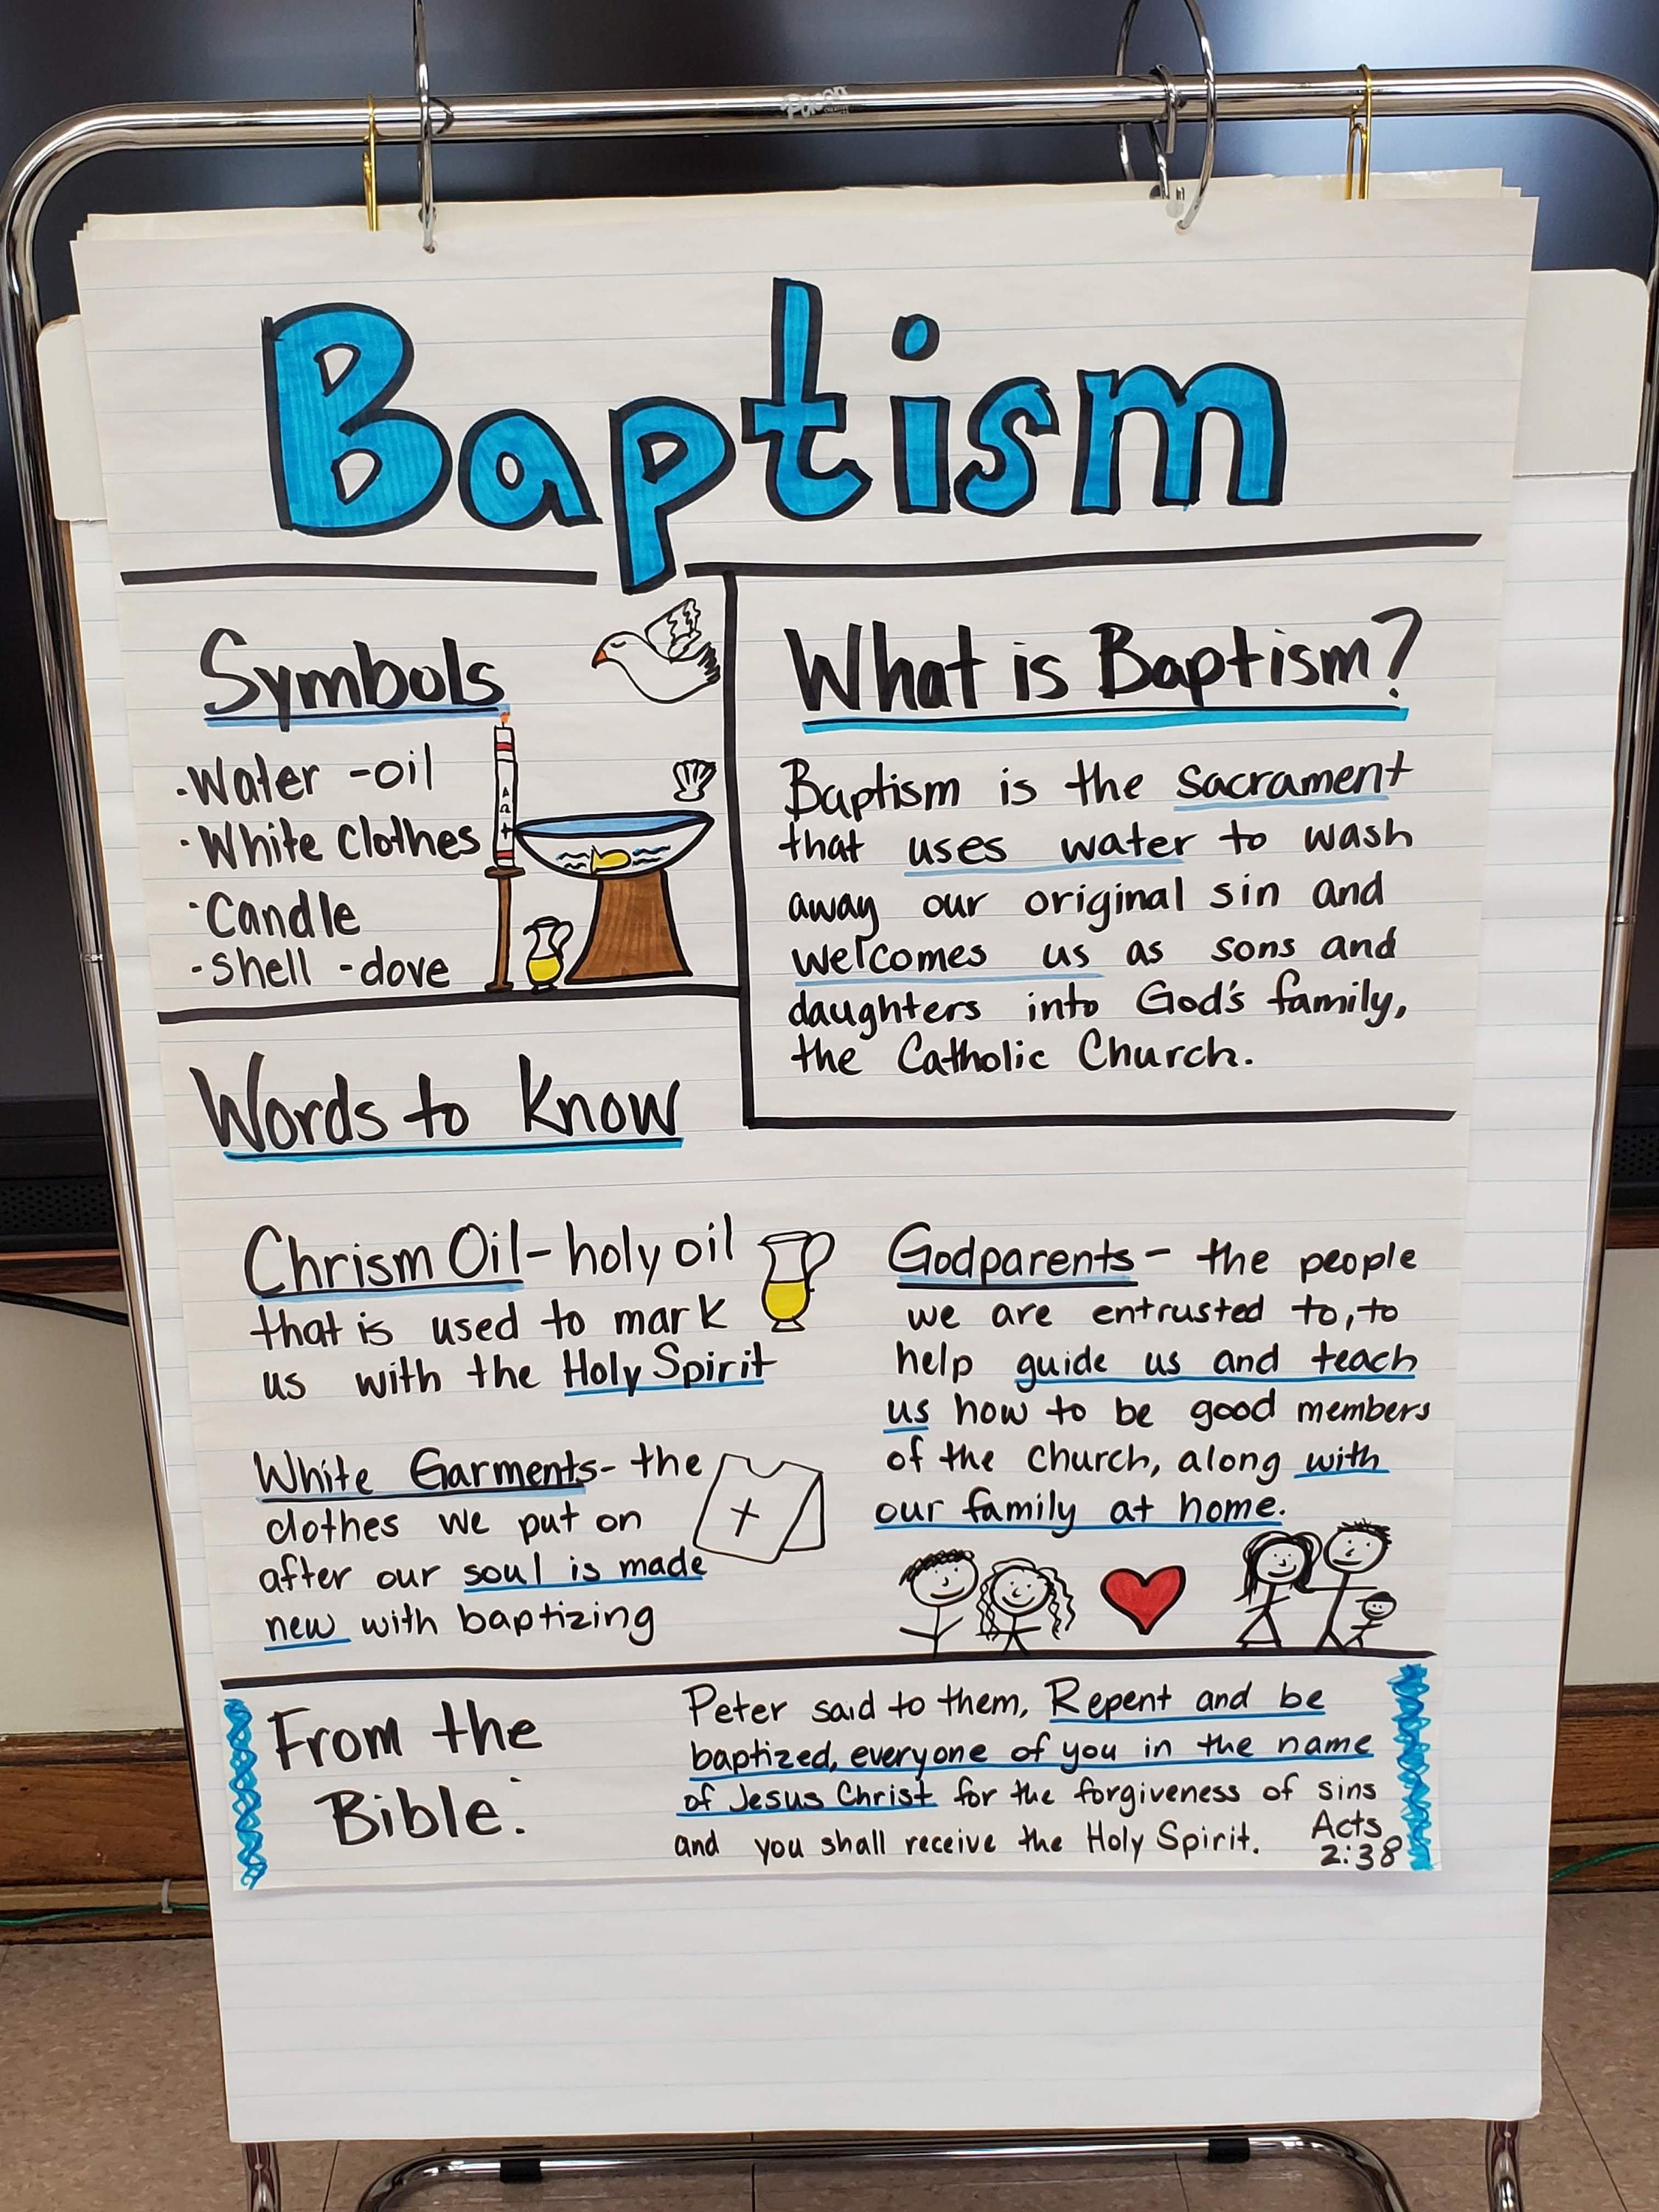 Pacon
Baptism
Symbols
·Water -oil
·White clothes
·Candle
-Shell -dove
What is Baptism?
Baptism is the sacrament
that uses water to wash
away our original sin and
welcomes us as sons and
daughters into God's family,
the Catholic Church.
Words to know
Chrism Oil- holy oil
that is used to mark
us with the Holy Spirit
White Garments- the
clothes we put on
after our soul is made
new with baptizing
Godparents- the people
we are entrusted to, to
help guide us and teach
us how to be good members
of the church, along with
our family at home.
From the
Bible:
Peter said to them, Repent and be
baptized, everyone of you in the name
of Jesus Christ for the forgiveness of sins
and you shall receive the Holy Spirit.
Acts
2:38